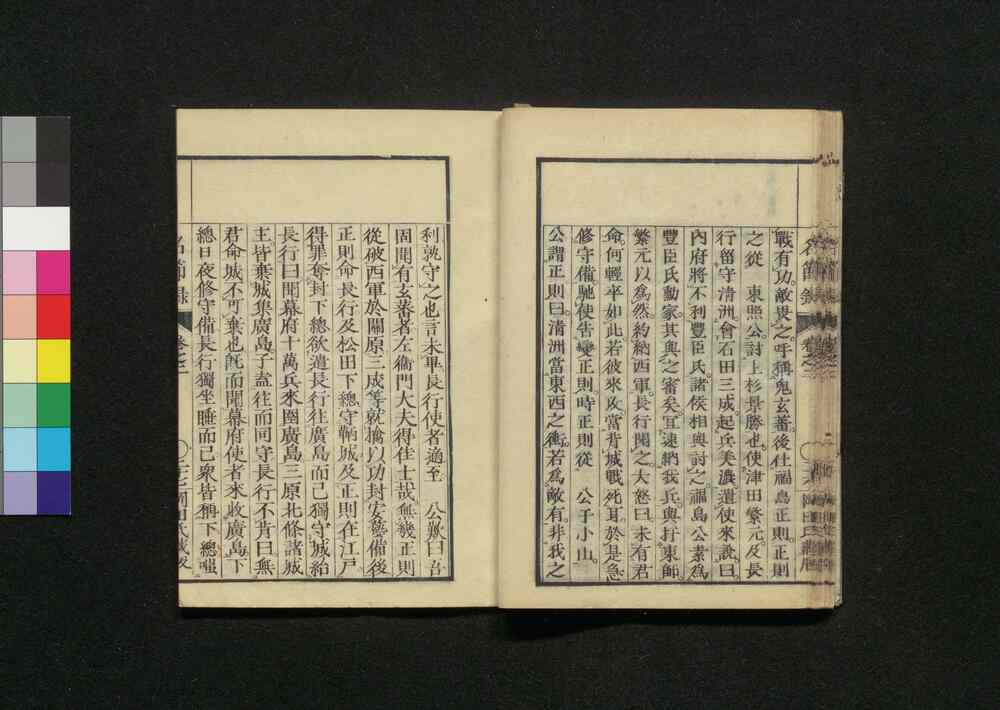 戰有功敵畏之呼稱鬼玄蕃後仕福島正則正則
之從　東照公討上杉景勝也使津田繁元及長
行留守清洲會石田三成起兵美濃遣使來說曰
內府將不利豐臣氏諸侯相與討之福島公素爲
豐臣氏勳家其與之審矣宜速納我兵與拒東師
繁元以爲然約納西軍長行聞之大怒曰未有君
命何輕卒如此若彼來攻當背城戰死耳於是急
修守備馳使告變正則時正則從　公于小山
公謂正則曰清洲當東西之衝若爲敵有非我之
利孰守之也言未畢長行使者適至　公歎曰吾
固聞有玄蕃者左衞門大夫得佳士哉無幾正則
從破西軍於關原三成等就擒以功封安藝備後
正則命長行及松田下總守鞆城及正則在江戶
得罪奪封下總欲遣長行往廣島而己獨守城紿
長行曰聞幕府十萬兵來圍廣島三原北條諸城
主皆棄城集廣島子盍往而同守長行不肯曰無
君命城不可棄也旣而聞幕府使者來收廣島下
總日夜修守備長行獨坐睡而已衆皆稱下總嗤
名節錄　卷之二